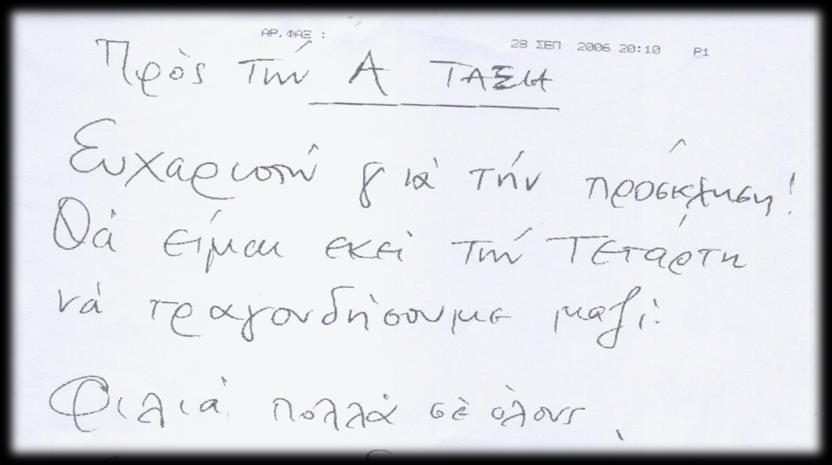 ΑΡ.ΦΑΞ : 28 ΣΕΠ 2006 20:10 P1
Πρὸς τήν Α ΤΑΞΗ
Ευχαριστώ γιά τήν πρόσκληση!
Θά είμαι εκεί τήν Τετάρτη
νά τραγουδήσουμε μαζί.
Φιλιά πολλά σὲ όλους